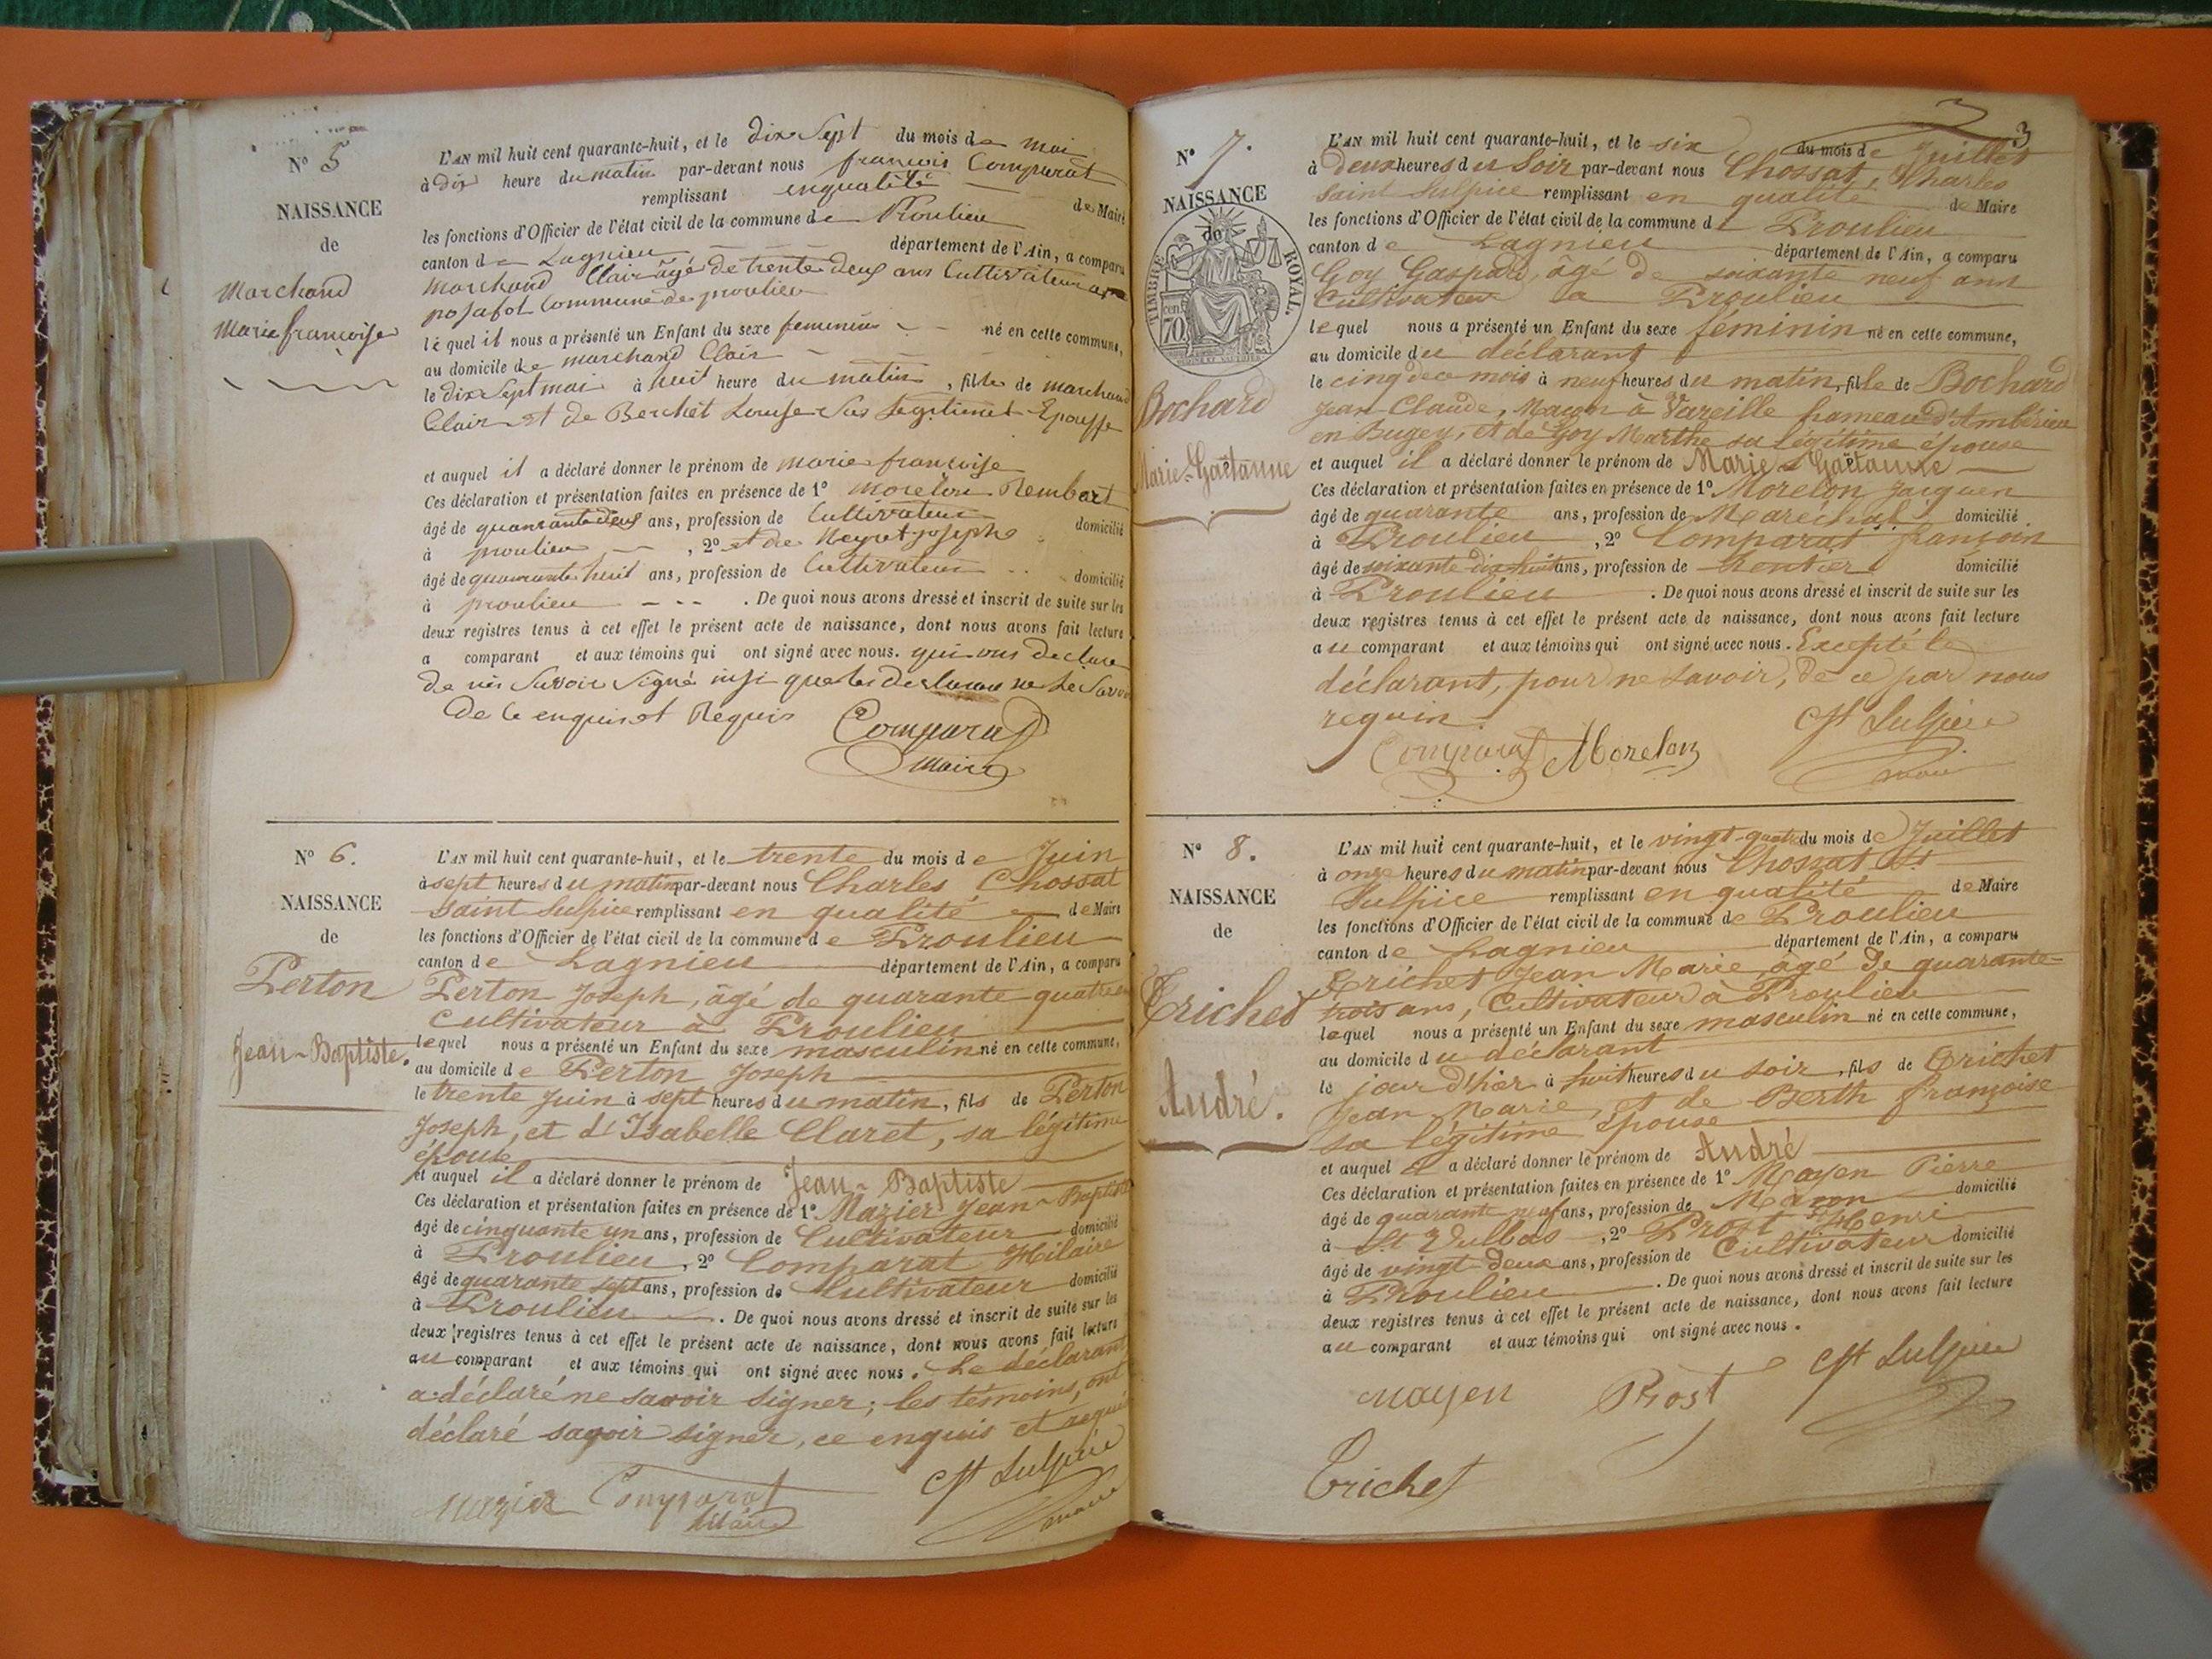 N° 5
NAISSANCE
de
Marchand
Marie françoise
L'AN mil huit cent quarante-huit, et le dix Sept du mois de mai
à dix heure du matin par-devant nous françois Comparat
remplissant enqualité de Maire
les fonctions d'Officier de l'état civil de la commune de Proulieu
canton de Lagnieu département de l'Ain, a comparu
marchand Clair âgé de trente deux ans Cultivateur a
posafol Commune de proulieu
lequel il nous a présenté un Enfant du sexe feminin né en cette commune,
au domicile de marchand Clair
le dix Sept mai à huit heure du matin, fille de marchand
Clair et de Berchet Louise Sus legitimet Epousse
et auquel il a déclaré donner le prénom de marie françoise
Ces déclaration et présentation faites en présence de 1° morelon Rembert
âgé de quanrantedeus ans, profession de Cultivateur domicilié
à proulieu, 2° et de Neyret joseph
âgé de quanrante huit ans, profession de Cultivateur domicilié
à proulieu . De quoi nous avons dressé et inscrit de suite sur les
deux registres tenus à cet effet le présent acte de naissance, dont nous avons fait lecture
a comparant et aux témoins qui ont signé avec nous. qui ons declare
de nes Savoir Signé insi que les
de Ce enquis et Requis Comparat
maire
N° 6.
NAISSANCE
de
Perton
Jean-Baptiste.
L'AN mil huit cent quarante-huit, et le trente du mois de Juin
à sept heures du matin par-devant nous Charles Chossat
Saint Sulpice remplissant en qualité de Maire
les fonctions d'Officier de l'état civil de la commune de Proulieu
canton de Lagnieu département de l'Ain, a comparu
Perton Joseph, âgé de quarante quatre
cultivateur à Proulieu
lequel nous a présenté un Enfant du sexe masculin né en cette commune,
au domicile de Perton Joseph
le trente Juin à sept heures du matin, fils de Perton
Joseph, et d'Isabelle Claret, sa légitime
épouse
et auquel il a déclaré donner le prénom de Jean-Baptiste
Ces déclaration et présentation faites en présence de 1° Mazier Jean-Baptiste
âgé de cinquante un ans, profession de Cultivateur domicilié
à Proulieu, 2° Comparat Hilaire
âgé de quarante sept ans, profession de Cultivateur domicilié
à Proulieu . De quoi nous avons dressé et inscrit de suite sur les
deux registres tenus à cet effet le présent acte de naissance, dont nous avons fait lecture
au comparant et aux témoins qui ont signé avec nous. Le déclarant
a déclaré ne savoir signer; les témoins, ont
déclaré savoir signer, ce enquis et requis
Mazier Comparat Ch St Sulpice
hilaire maire
3
N° 7.
NAISSANCE
de
TIMBRE ROYAL.
cen. 70
Bochard
Marie-Gaëtanne
L'AN mil huit cent quarante-huit, et le six du mois de Juillet
à deux heures du Soir par-devant nous Chossat, Charles
Saint Sulpice remplissant en qualité de Maire
les fonctions d'Officier de l'état civil de la commune de Proulieu
canton de Lagnieu département de l'Ain, a comparu
Goy Gaspard, âgé de soixante neuf ans
Cultivateur a Proulieu
lequel nous a présenté un Enfant du sexe féminin né en cette commune,
au domicile du déclarant
le cinq de ce mois à neuf heures du matin, fille de Bochard
Jean-Claude, Maçon à Vareille hameau d'Ambérieu
en Bugey, et de Goy Marthe sa légitime épouse
et auquel il a déclaré donner le prénom de Marie-Gaëtanne
Ces déclaration et présentation faites en présence de 1° Morelon Jacques
âgé de quarante ans, profession de Maréchal domicilié
à Proulieu, 2° Comparat françois
âgé de soixante dix-huit ans, profession de Rentier domicilié
à Proulieu . De quoi nous avons dressé et inscrit de suite sur les
deux registres tenus à cet effet le présent acte de naissance, dont nous avons fait lecture
au comparant et aux témoins qui ont signé avec nous. Excepté le
déclarant, pour ne savoir, de ce par nous
requis. Ch St Sulpice
Comparat Morelon maire
N° 8.
NAISSANCE
de
Trichet
André.
L'AN mil huit cent quarante-huit, et le vingt-quatre du mois de Juillet
à onze heures du matin par-devant nous Chossat St
Sulpice remplissant en qualité de Maire
les fonctions d'Officier de l'état civil de la commune de Proulieu
canton de Lagnieu département de l'Ain, a comparu
Trichet Jean Marie, âgé de quarante-
trois ans, Cultivateur à Proulieu
lequel nous a présenté un Enfant du sexe masculin né en cette commune,
au domicile du déclarant
le jour d'hier à huit heures du soir, fils de Trichet
Jean Marie, et de Berth françoise
sa légitime épouse
et auquel il a déclaré donner le prénom de André
Ces déclaration et présentation faites en présence de 1° Mayen Pierre
âgé de quarante neuf ans, profession de Maçon domicilié
à St Vulbas, 2° Prost Henri
âgé de vingt deux ans, profession de Cultivateur domicilié
à Proulieu . De quoi nous avons dressé et inscrit de suite sur les
deux registres tenus à cet effet le présent acte de naissance, dont nous avons fait lecture
au comparant et aux témoins qui ont signé avec nous.
mayen Prost Ch St Sulpice
Trichet